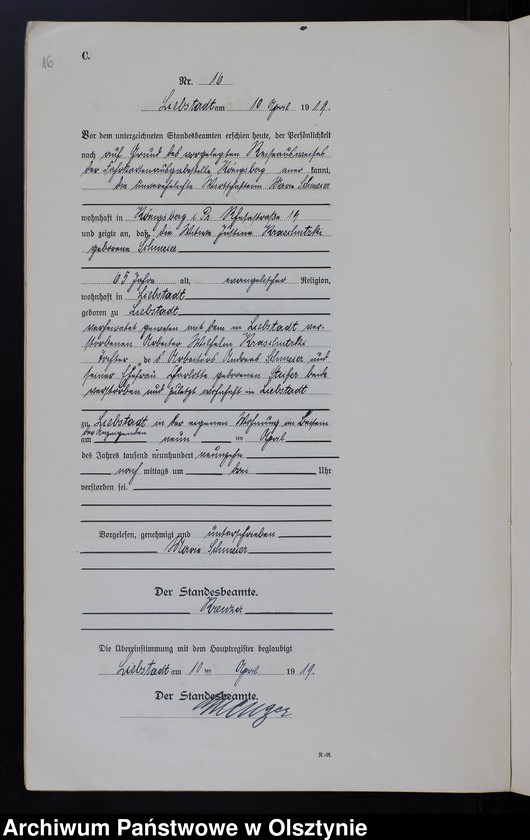 16
C.
Nr. 16
Liebstadt am 10 April 1919.
Vor dem unterzeichneten Standesbeamten erschien heute, der Persönlichkeit
nach auf Grund des vorgelegten Reiseausweises
der Fahrkartenausgabestelle Königsberg anerkannt,
die unverehelichte Wirtschafterin Marie Schmeier
wohnhaft in Königsberg i Pr
und zeigte an, daß die Witwe Justine Kraschutzki
geborene Schmeier
65 Jahre alt, evangelischer Religion,
wohnhaft in Liebstadt
geboren zu Liebstadt
verheiratet gewesen mit dem in Liebstadt ver-
storbenen Arbeiter Wilhelm Kraschutzki
Tochter des Arbeiters Andreas Schmeier und
seiner Ehefrau Charlotte geborenen beide
verstorben und zuletzt wohnhaft in Liebstadt
zu Liebstadt in der eigenen Wohnung im Beisein
der Anzeigenden
am neun ten April
des Jahres tausend neunhundert neunzehn
nach mittags um drei Uhr
verstorben sei.
Vorgelesen, genehmigt und unterschrieben
Marie Schmeier
Der Standesbeamte.
Die Übereinstimmung mit dem Hauptregister beglaubigt
Liebstadt am 10 ten April 1919.
Der Standesbeamte.
R.-R.
Archiwum Państwowe w Olsztynie